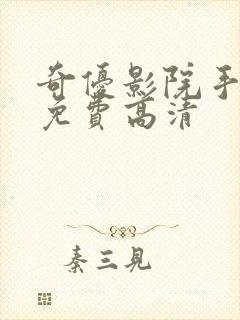 奇優影院手
免費高清
秦三見